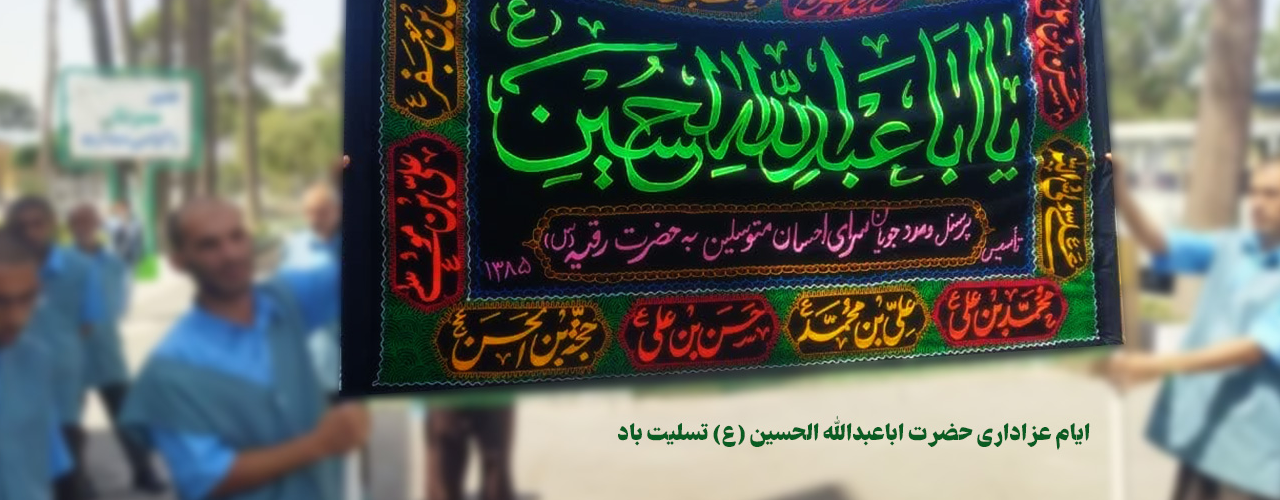 یا ابا عبدالله الحسین (ع)
پرسنل و مددجویان سرای احسان متوسلین به حضرت رقیه (س)
تأسیس ۱۳۸۵
جعفر
علی بن موسی
محمد بن علی
علی بن محمد
حسن بن علی
حجة بن الحسن
ایام عزاداری حضرت اباعبدالله الحسین (ع) تسلیت باد